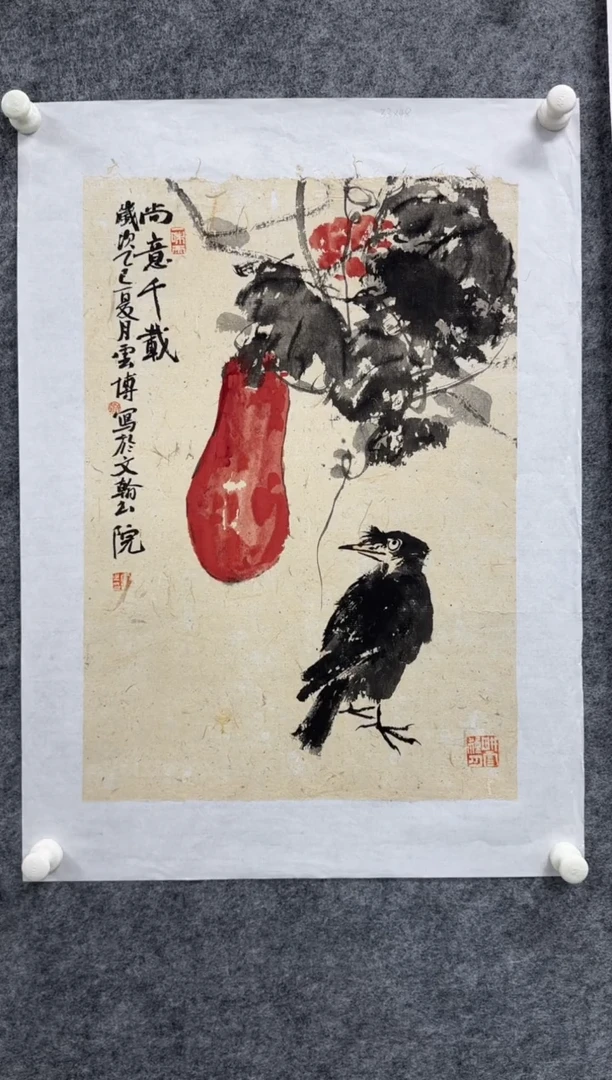 尚意千載
歲次乙巳夏月雲博寫於文翰山院